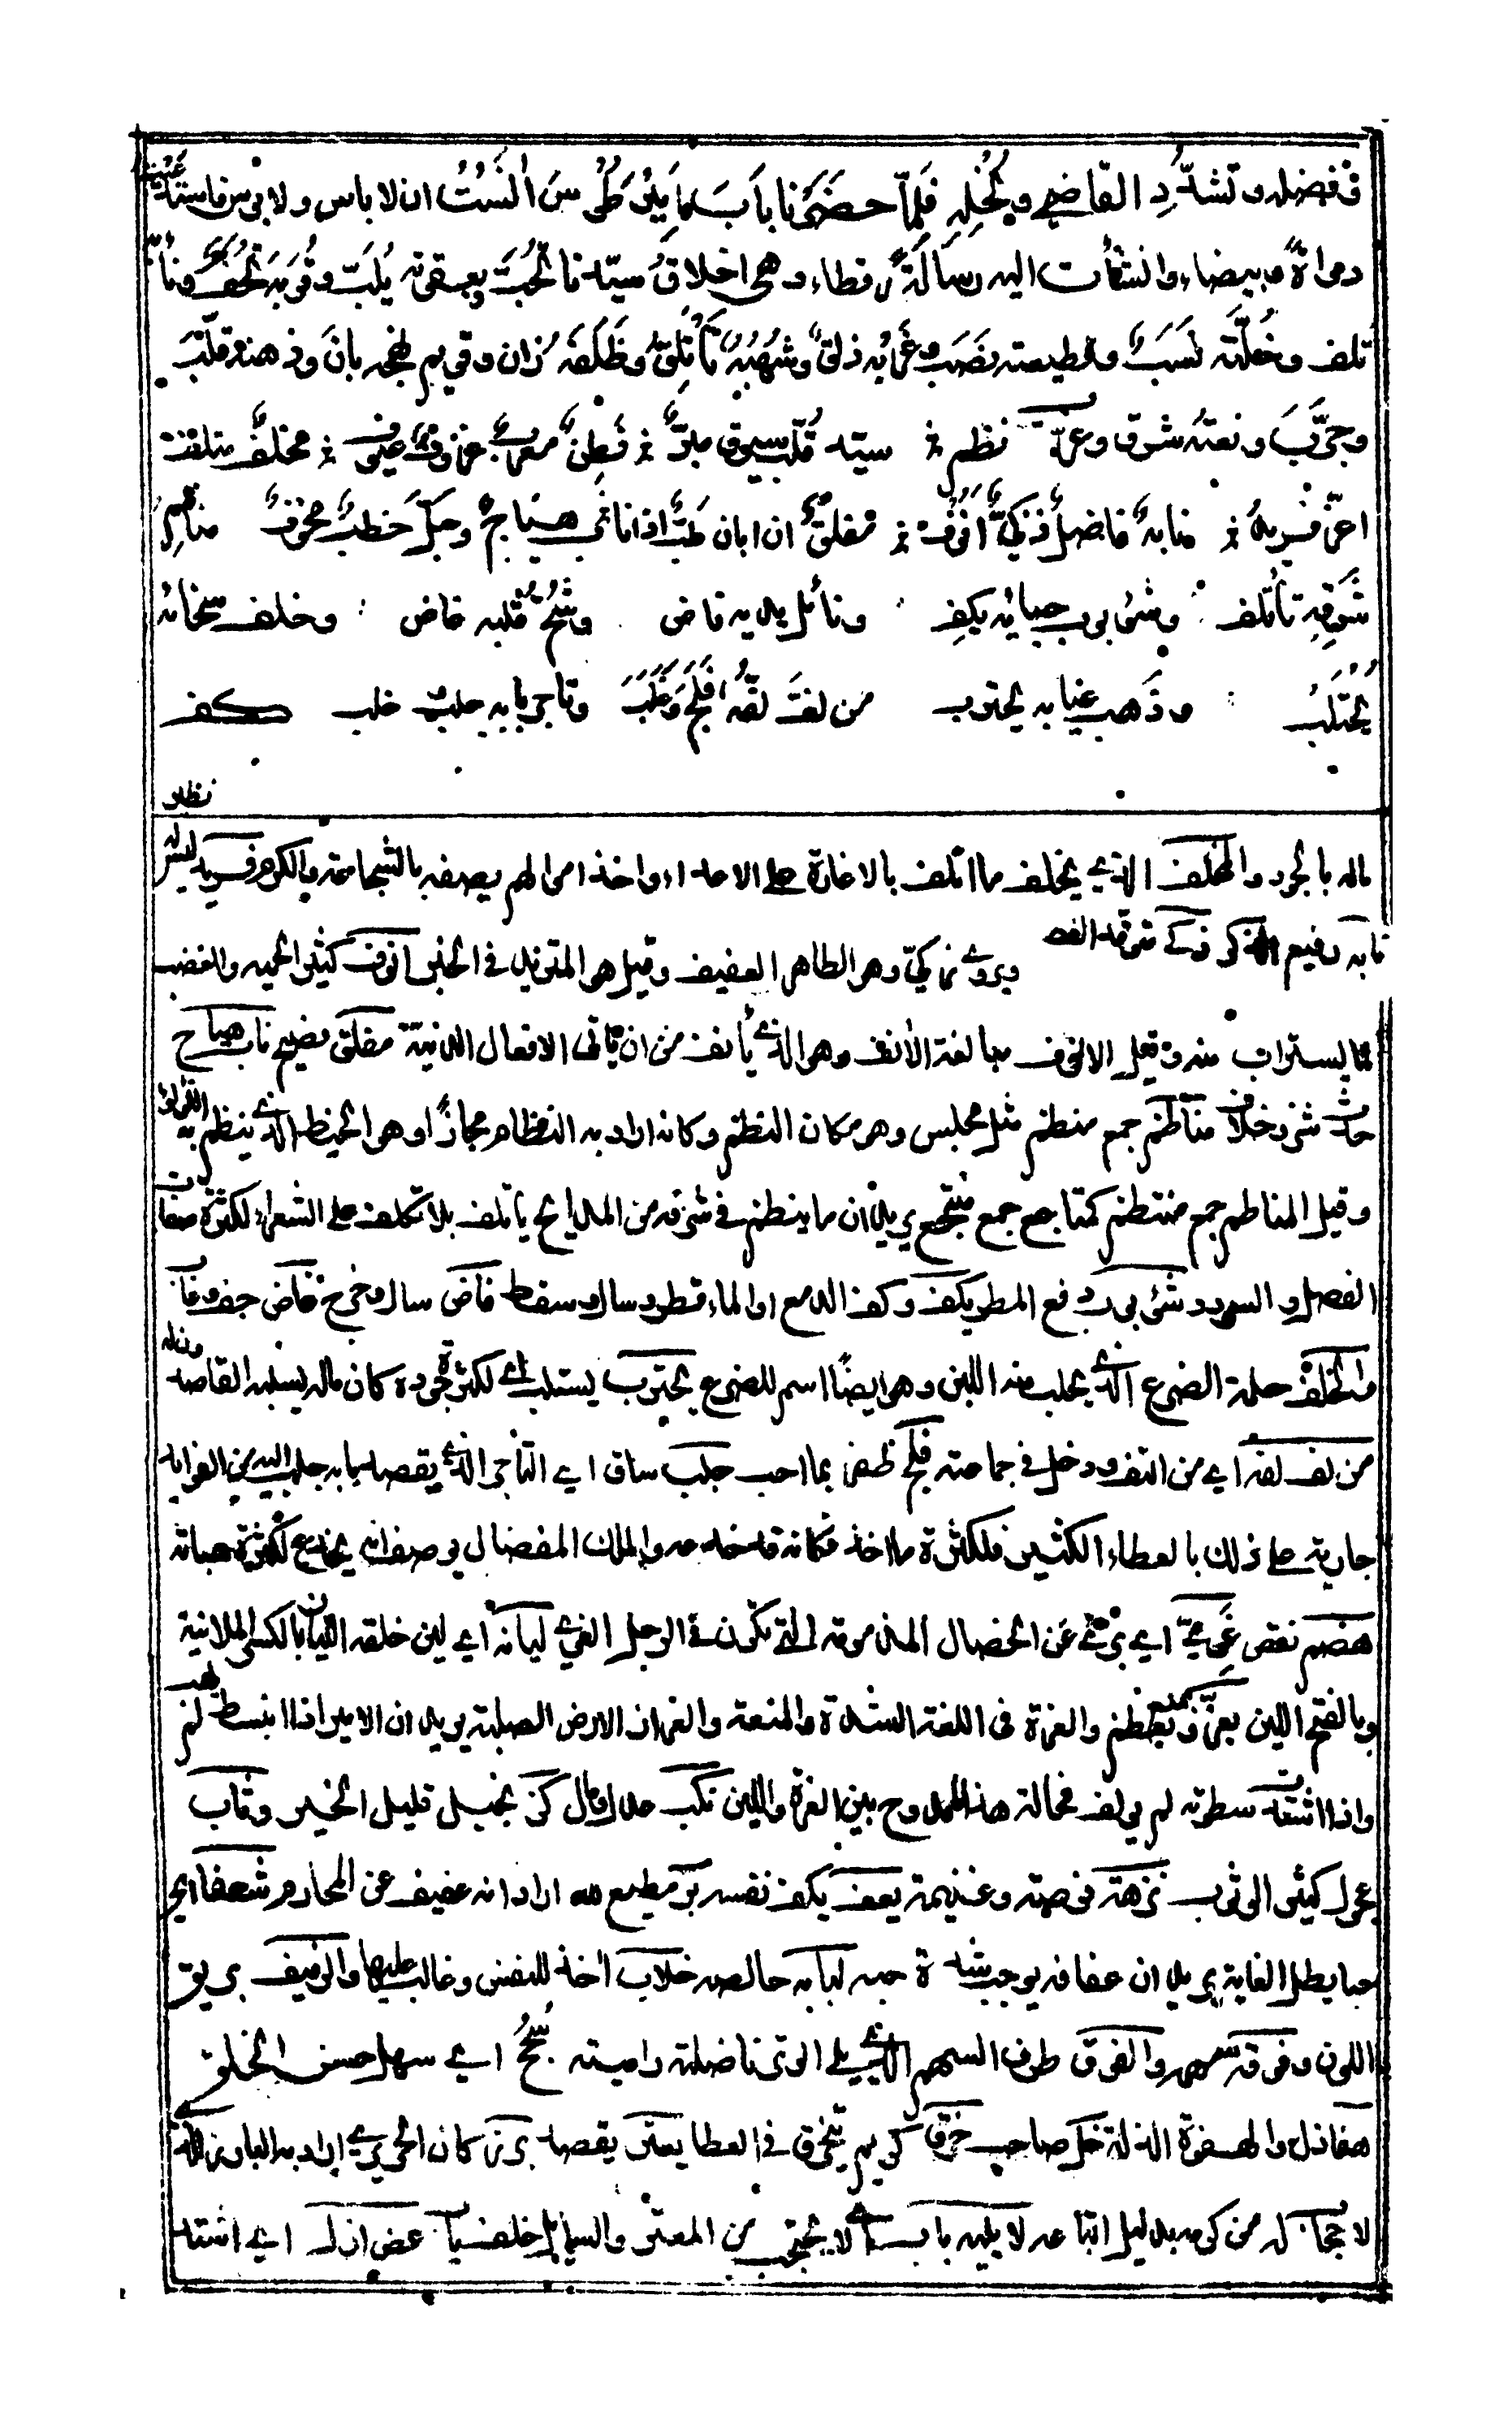 فى فضله وتشدد القاضى وبخله فلما حضرنا باب امير طوس انست ان لا باس ولا بوس فاستدعيت
دواة وبيضاء وانشأت اليه رسالة رقطاء وهى اخلاق سيدنا تحب وبعقوته يلب وقربه تحف ونأيه
تلف وخلته نسب وقطيعته نصب وغربه ذلق وشهبه تأتلق وظلفه زان وقويم نهجه بان وذهنه قلب
وجرب ونعته شرق وغرب نظم سيد قلب سبوق مبر فطن مغرب عزوف عيوف مخلف متلف
اغر فريد نابه فاضل ذكى انوف مفلق ان ابان طب اذا ناب هياج وجل خطب مخوف مناظم
شرفه تأتلف وشؤبوب حبائه يكف ونائل يديه فاض وشح قلبه غاض وخلف سخائه
يحتلب وذهب عيابه يحترب من لف لفه فلج وغلب وتاجر بابه جلب خلب كف
ماله بالجود والمخلف الذى يخلف ما اتلف بالاغارة على الاعداء واخذ اموالهم يصفه بالشجاعة والكرم فريد ليس له
نابه رفيع الذكر ذكى متوقد ويروى زكى وهو الطاهر العفيف وقيل هو المتزيد فى الخير انوف كثير الحمية والغضب
مما يستراب منه وقيل الانوف مبالغة الأنف وهو الذى يأنف من ان يأتى الافعال الدنية مفلق فصيح ناب هياج
حدث شر وخلاف مناظم جمع منظم مثل مجلس وهو مكان النظم وكانه اراد به النظام مجازا او هو الخيط الذى ينظم به اللؤلؤ
وقيل المناظم جمع منتظم كمناجع جمع منتجع يريد ان ما ينظم فى شرفه من المدايح يأتلف بلا تكلف على الشعراء لكثرة صفات
الفضل والسودد شؤبوب دفع المطر يكف وكف الدمع او الماء قطر وسال وسقط فاض سال وخرج غاض جف
والخلف حلمة الضرع الذى يحلب منه اللبن وهو ايضا اسم للضرع يحترب يستلب اى لكثرة جوده كان ماله يسلبه القاصد
من لف لفه اى من التف ودخل فى جماعته فلج ظفر بما احب جلب ساق اى التاجر الذى يقصد بابه جلب اليه من الغرايب
جاريه على ذلك بالعطاء الكثير فلكثرة ما اخذ فكانه قد خدعه والملك المفضال يوصف انه يخادع لكثرة هباته
هضم نقص غير اى برئ عن الخصال المذمومة التى تكون فى الرجل الغر ليانه اى لين خلقه الليان بالكسر الملاينة
وبالفتح اللين بعز يعظم والعزة فى اللغة الشدة والمنعة والعزاز الارض الصلبة يريد ان الامير اذا انبسط لم
واذا اشتدت سطوته لم يولف فحالة هذا الممدوح بين العزة واللين نكب عدل ومال كز بخيل قليل الخير وثاب
عجول كثير الوثوب نهزة فرصته وغنيمة يعف يكف نفسه بر مطيع لله اراد انه عفيف عن المحارم شغفا اى
حبا يصل الغاية يريد ان عفافه يوجب شدة حبه لبابه خالصه خلاب اخذ للنفس وغالب عليها والرفيف بريق
اللون وفوق سهم والفوق طرف السهم الذى يلى الوتر ناضلته راميته سجح اى سهل حسن الخلق
هفا زل والهفوة الزلة خل صاحب خرق كريم يتخرق فى العطا يعتر يقصد برز كان الحريرى اراد به البارز لانه
لا حجاب له من كرمه بدليل اتباعه لا يليه باب اى لا يحتجب من المعتر والسايل خلف ياب عض ازل اى اشتد